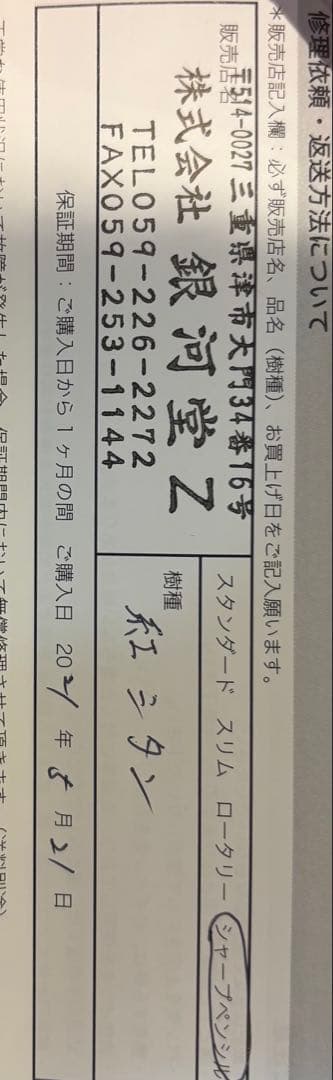 修理依頼・返送方法について
＊販売店記入欄：必ず販売店名、品名（樹種）、お買上げ日をご記入願います。
販売店名
〒514-0027 三重県津市大門34番16号
株式会社 銀河堂Z
TEL059-226-2272
FAX059-253-1144
スタンダード スリム ロータリー シャープペンシル
樹種
紅シタン
保証期間：ご購入日から1ヶ月の間 ご購入日 2021年8月21日